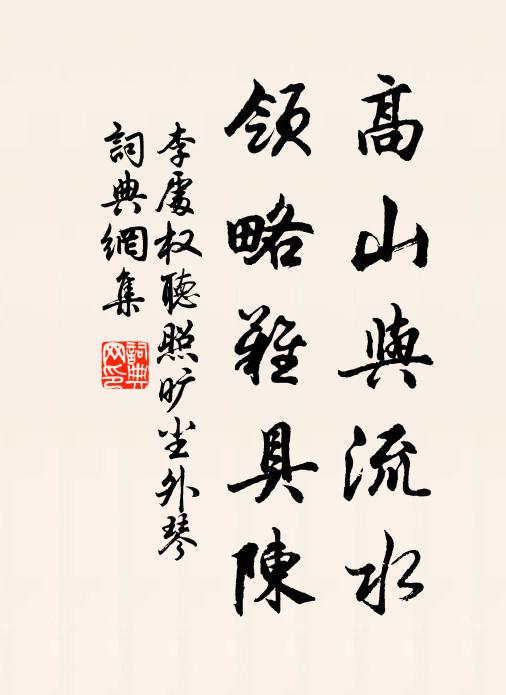 高山與流水
領略難具陳
李處權聽照曠坐外琴
詞典網集
詞典網印